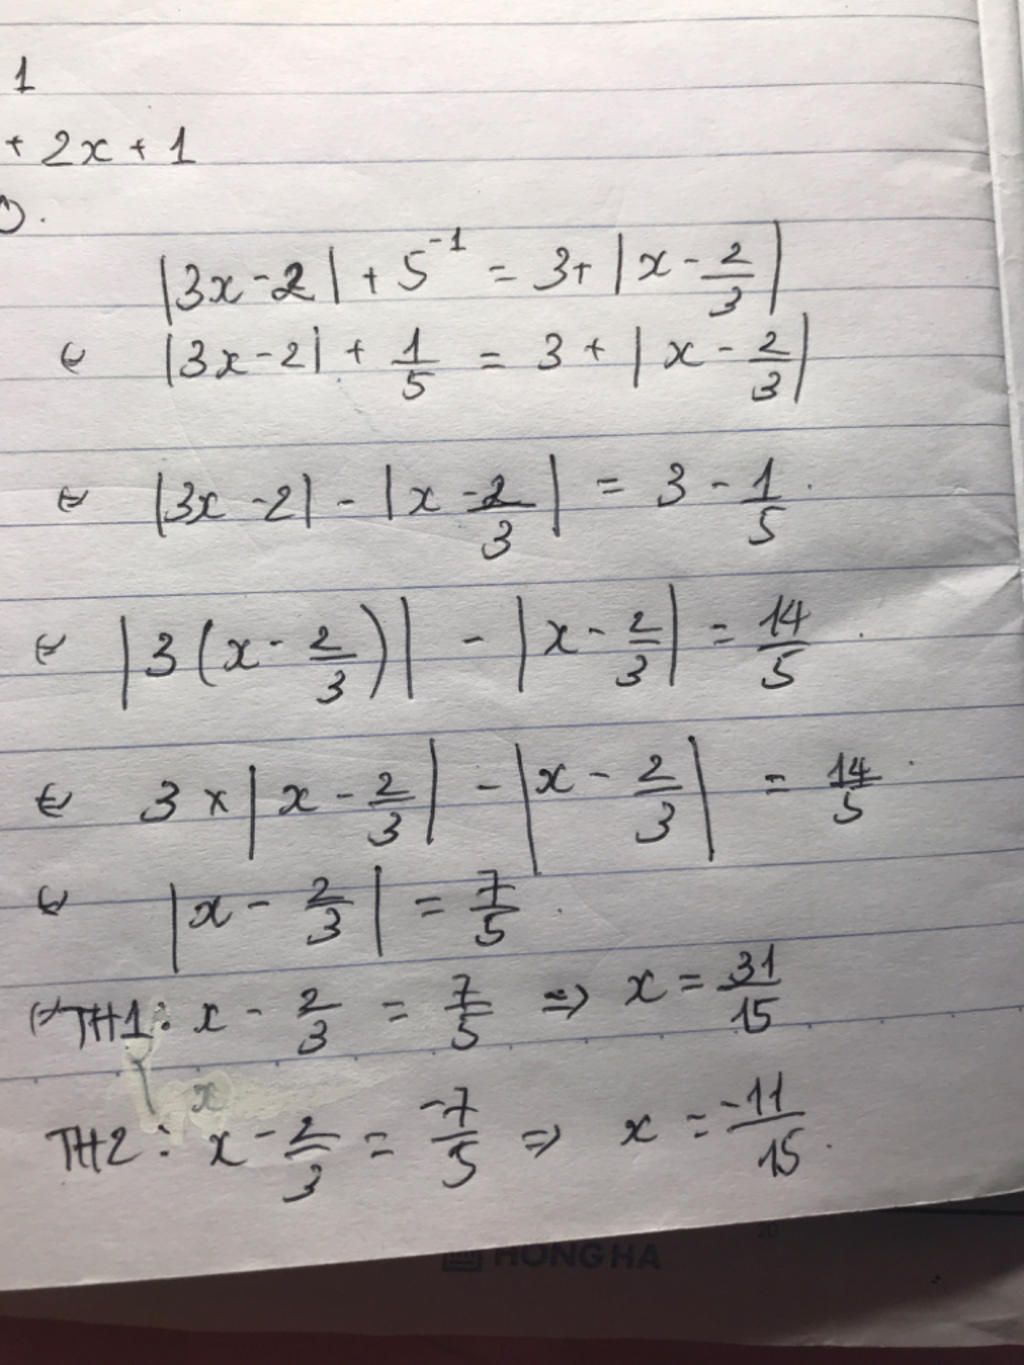 1
+ 2x + 1
|3x - 2| + 5⁻¹ = 3 + |x - 2/3|
⇔ |3x - 2| + 1/5 = 3 + |x - 2/3|
⇔ |3x - 2| - |x - 2/3| = 3 - 1/5.
⇔ |3(x - 2/3)| - |x - 2/3| = 14/5.
⇔ 3 × |x - 2/3| - |x - 2/3| = 14/5.
⇔ |x - 2/3| = 7/5.
⇔ TH1: x - 2/3 = 7/5 => x = 31/15
x
TH2: x - 2/3 = -7/5 => x = -11/15.
20
HONG HA